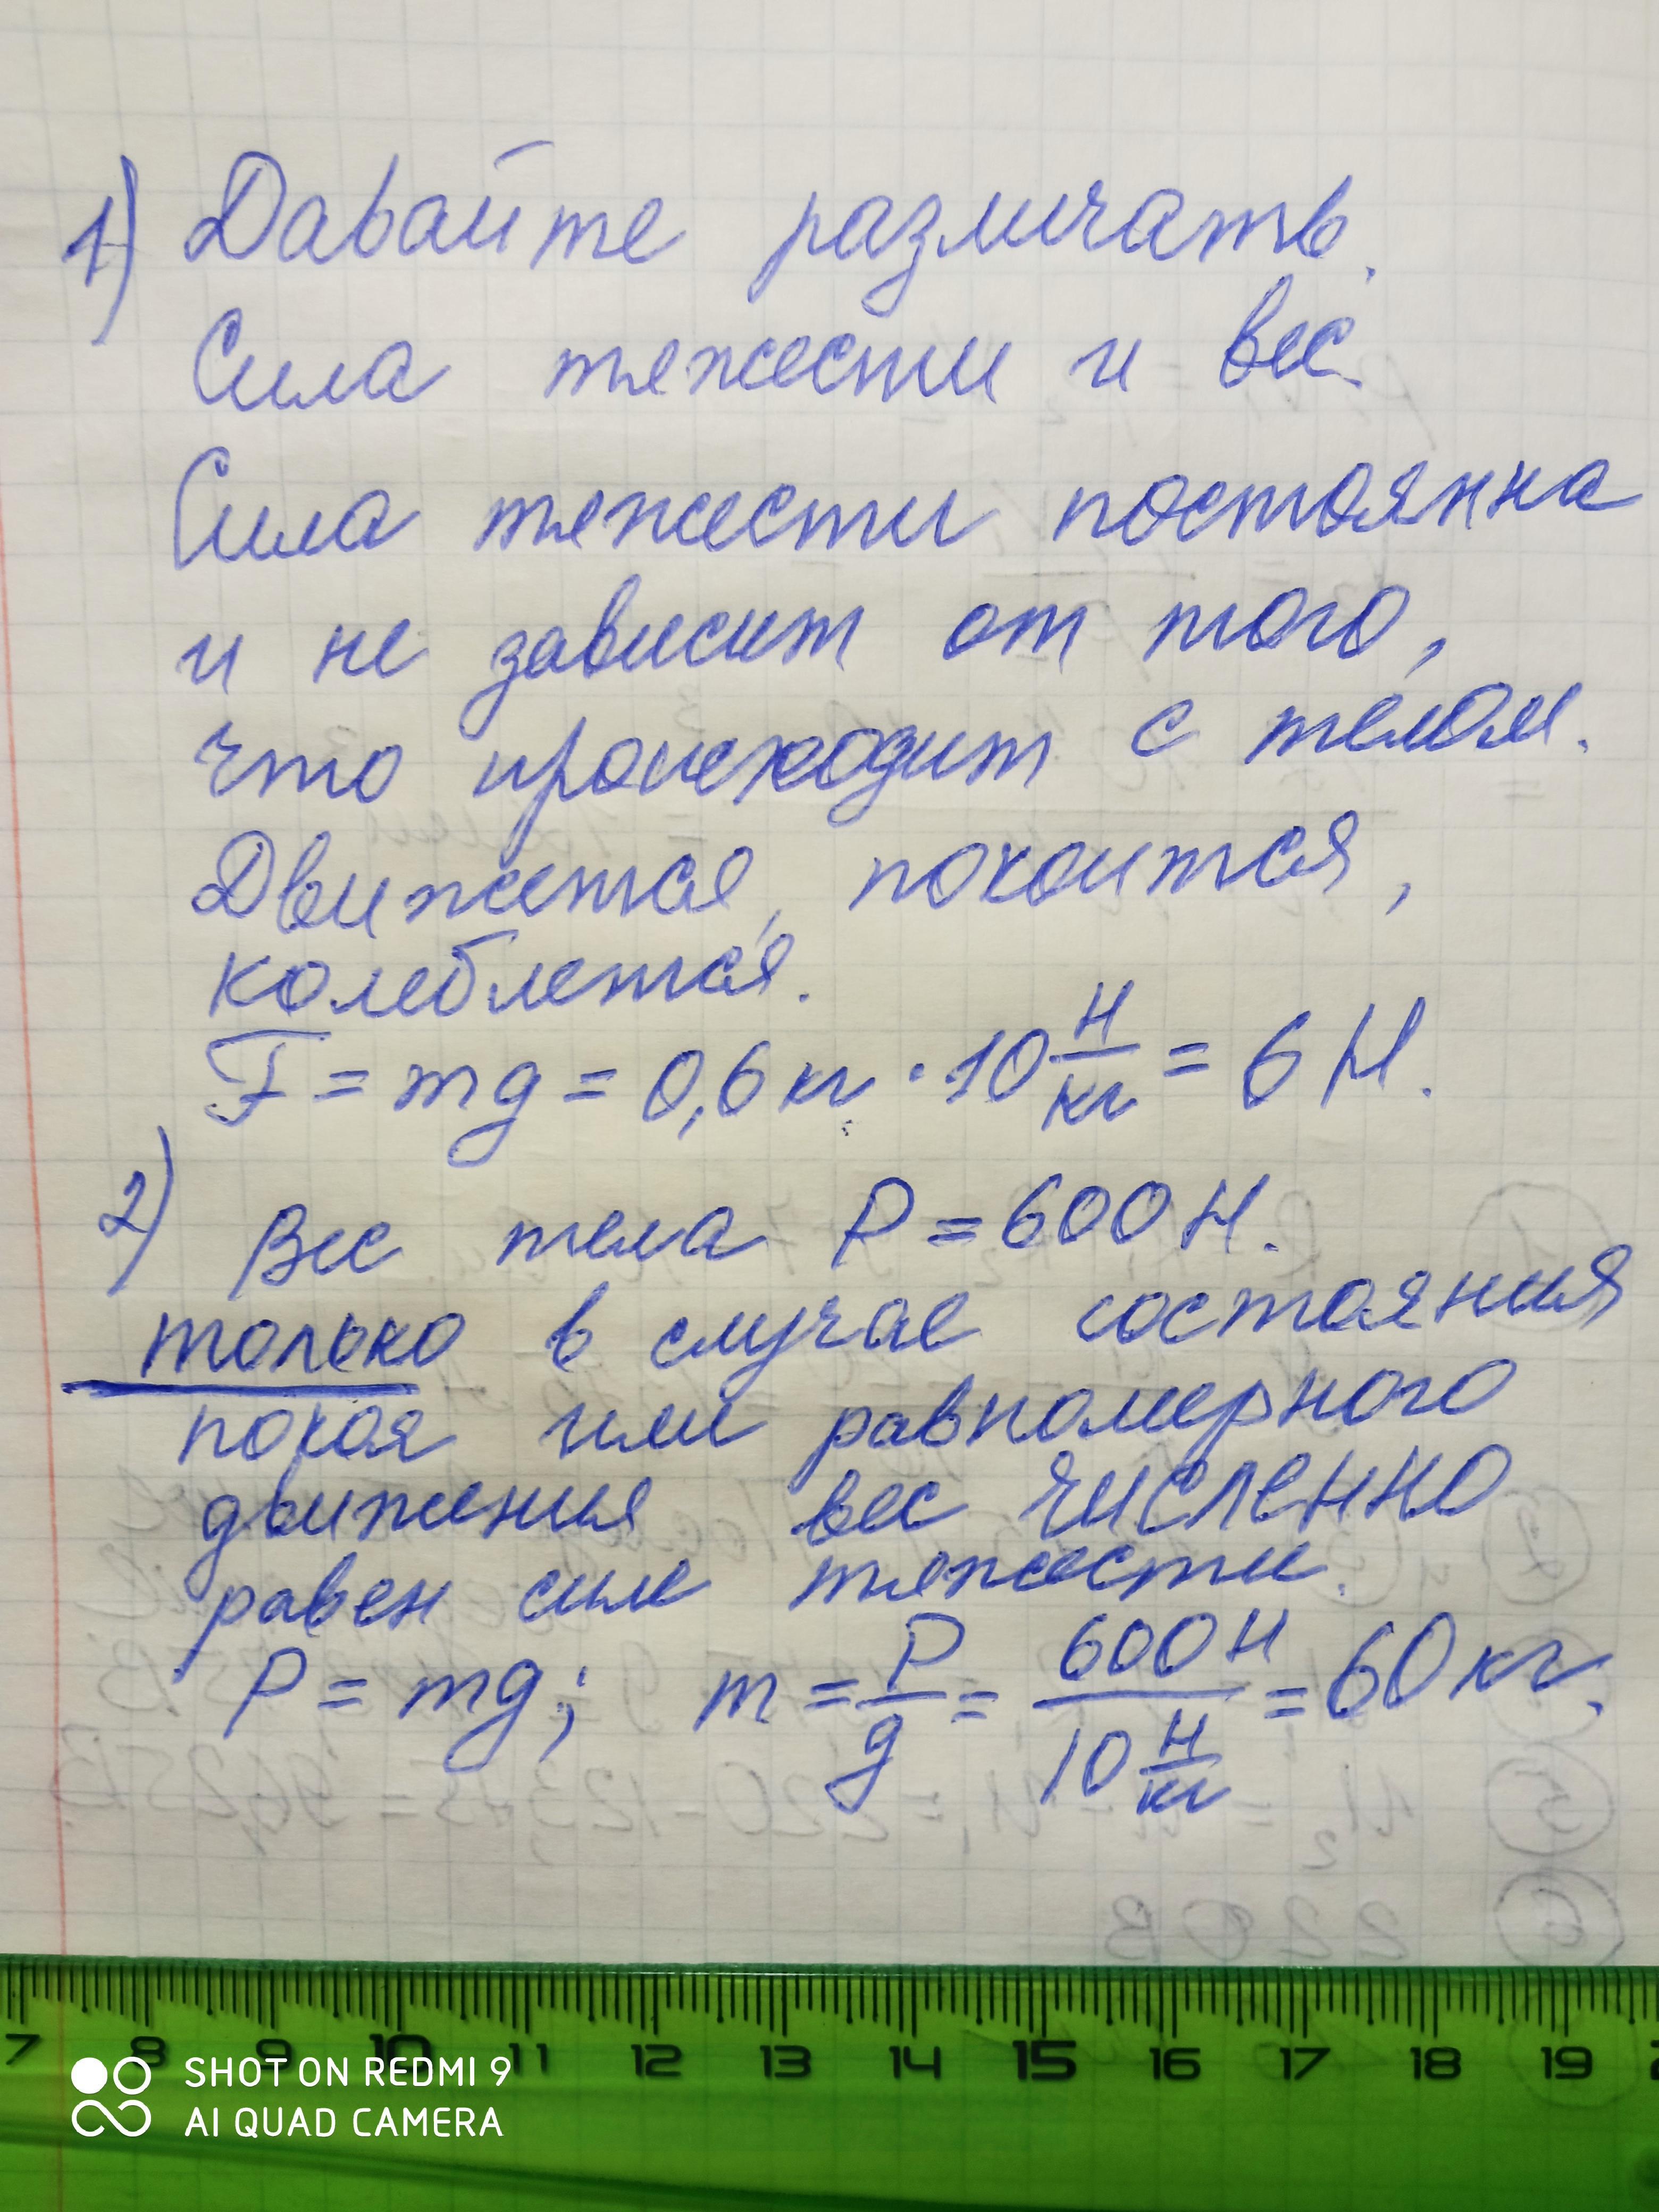 1) Давайте различать.
Сила тяжести и вес.
Сила тяжести постоянна
и не зависит от того,
что происходит с телом.
Движется, покоится,
колеблется.
F = mg = 0,6 кг · 10 Н/кг = 6 Н.
2) Вес тела P = 600 Н.
только в случае состояния
покоя или равномерного
движения вес численно
равен силе тяжести.
P = mg; m = P/g = 600 Н / 10 Н/кг = 60 кг.
7 8 9 10 11 12 13 14 15 16 17 18 19
SHOT ON REDMI 9
AI QUAD CAMERA